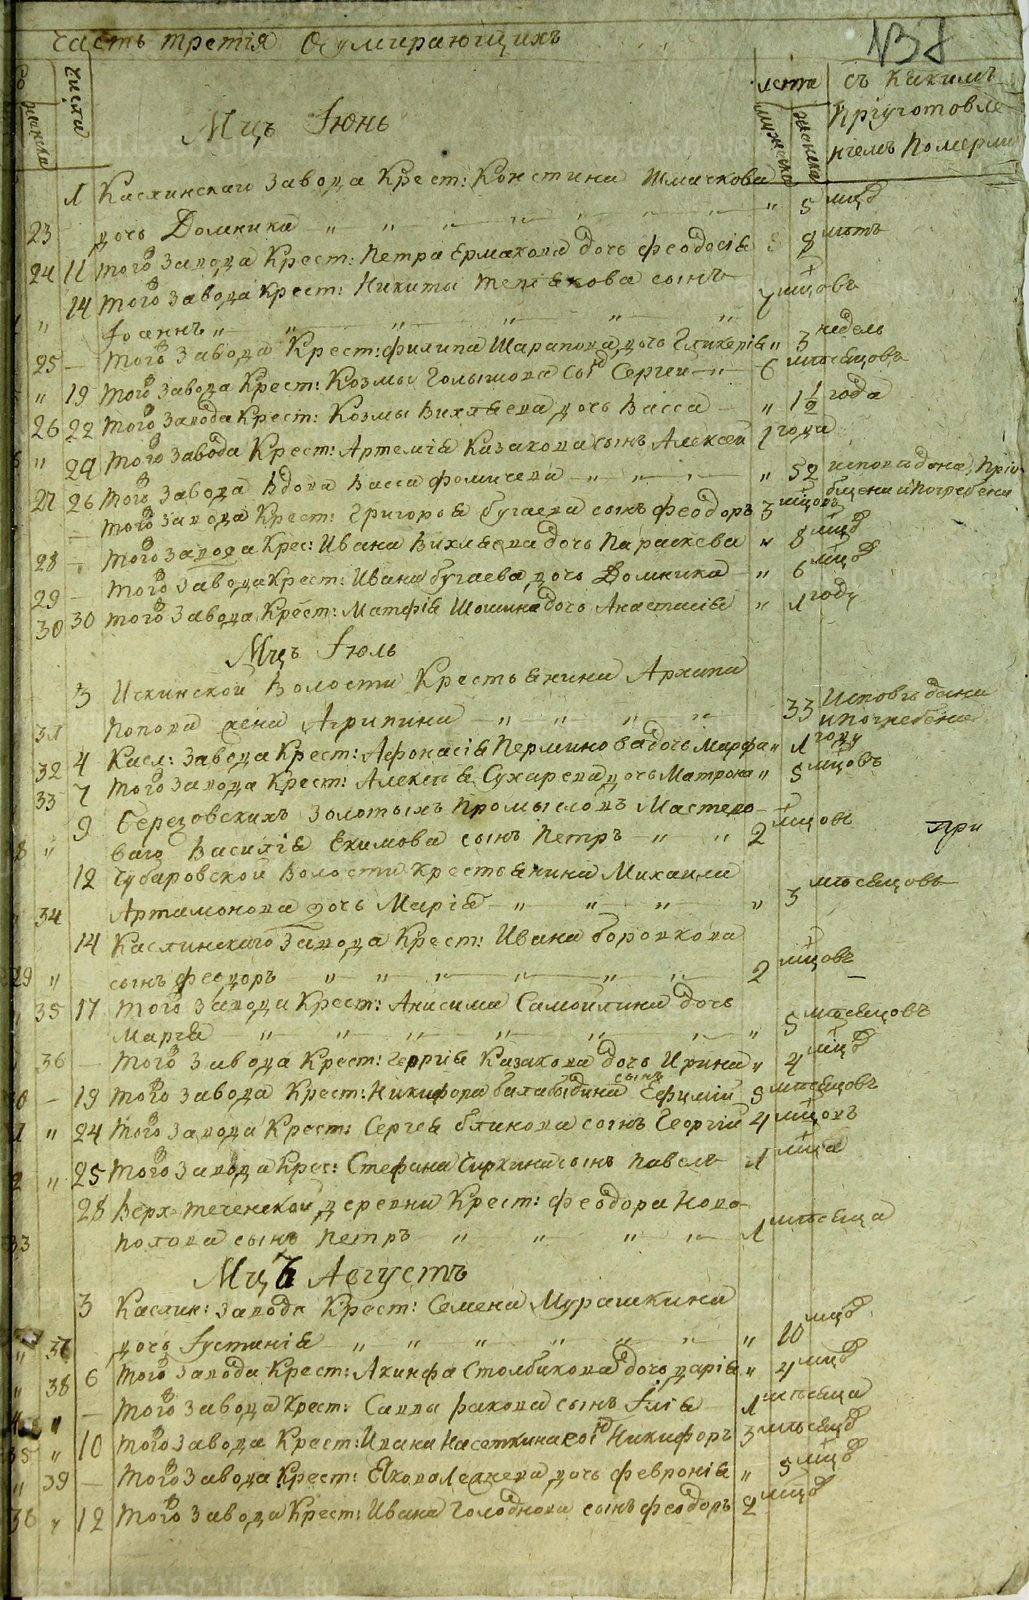 Часть третія Оумирающихъ
№ 8
женска
числа
лета
мужеска
женска
съ какимъ
пріуготовле
ніемъ померли
Мцъ Іюнь
1 Каслинскаго завода Крест: Констина Шмачкова
23 дочь Домника „ „ „ „ „ „ „ 5 мцо
24 11 того завода Крест: Петра Ермакова дочь Феодосія 8 летъ
14 того завода Крест: Никиты сынъ
„ Іоаннъ „ „ „ „ „ „ мцовъ
25 — того завода Крест: Филипа Шарапова дочь Гликерія „ 3 недель
„ 19 того завода Крест: Козмы Голышова сы Сергеи — 6 месяцовъ
26 22 того завода Крест: Козмы Вихляева дочь Васса „ 1 1/2 года
„ 24 того завода Крест: Артемія Казакова сынъ Алексеи 1 года
27 26 того завода вдова Васса Фомичева „ „ „ „ 52 исповедана, Пріо
бщена и погребена
— того завода Крест: Григорья Бугаева сынъ Феодоръ 3 мцовъ
28 — того завода Крес: Ивана Вихляева дочь Параскева „ 8 мцо
29 — того завода Крест: Ивана Бугаева дочь Домника „ 6 мцо
30 30 того завода Крест: Матфія Шошина дочь Анастасія „ 1 году
Мцъ Іюль
3 Искинской Волости Крестьянина Архипа
31 Попова жена Агрипина „ „ „ „ 33 исповедана
и погребена
32 4 Касл: завода Крест: Афонасія Перминова дочь Марфа „ 1 году
33 7 того завода Крест: Алексея Сухарева дочь Матрона „ 5 мцовъ
9 Березовскихъ Золотыхъ промысловъ Мастеро
„ ваго Василія Екимова сынъ Петръ „ „ 2 мцовъ
При
12 Губаровской Волости крестьянина Михаила
34 Артамонова дочь Марія „ „ „ „ 3 месяцовъ
14 Каслинскаго завода Крест: Ивана Боровкова
29 „ сынъ Феодоръ „ „ „ „ „ „ 2 мцовъ
35 17 того завода Крест: Анисима Самоилина дочь
Марѳа „ „ „ „ „ „ „ 5 месяцовъ
36 — того завода Крест: Геррія Казакова дочь Ирина „ 4 мцо
— 19 того завода Крест: Никифора сынъ Ефимій 9 месяцовъ
„ 24 того завода Крест: Сергея Блинова сынъ Георгій 4 мцовъ
„ 25 того завода Крес: Стефана Чиркина сынъ Павелъ 1 мца
28 Верх-теченской деревни Крест: Феодора Ново
33 полова сынъ Петръ „ „ „ „ 1 месяца
Мцъ Августъ
3 Каслин: завода Крест: Семена Мурашкина
„ 37 дочь Іустинія „ „ „ „ „ „ „ 10 мцо
„ 38 6 того завода Крест: Акинфа Столбикова дочь Дарія „ 4 мцо
„ — того завода Крест: Саввы Ракова сынъ Ілія — 1 месяца
35 „ 10 того завода Крест: Ивана Насеткина сы Никифоръ 3 месяцо
„ 39 — того завода Крест: Якова дочь Февронія „ 5 мцо
36 „ 12 того завода Крест: Ивана Голоднова сынъ Феодоръ 2 мцо